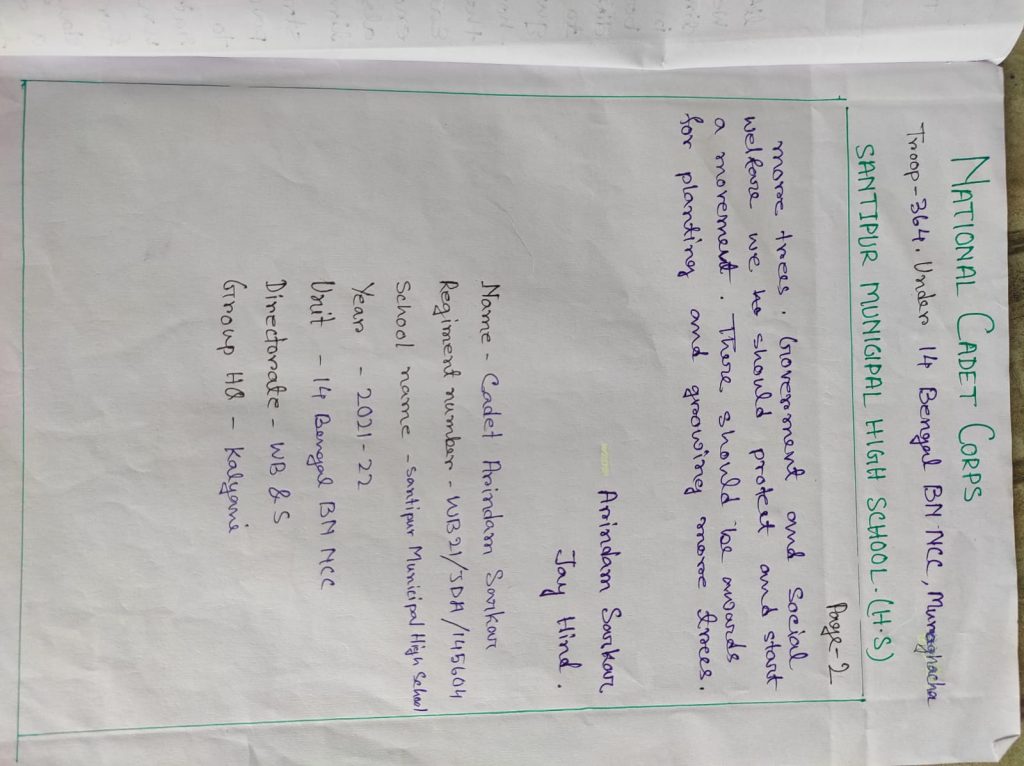 NATIONAL CADET CORPS
Troop-364. Under 14 Bengal BN NCC, Muragachha
SANTIPUR MUNICIPAL HIGH SCHOOL.(H.S)
Page-2
more trees. Government and Social
welfare we ho should protect and start
a movement. There should be awards
for planting and growing more trees.
Arindam Sarkar
Jay Hind.
Name - Cadet Arindam Sarkar
Regiment number - WB21/JDA/145604
School name - santipur Municipal High School
Year - 2021-22
Unit - 14 Bengal BN NCC
Directorate - WB & S
Group HQ - Kalyani